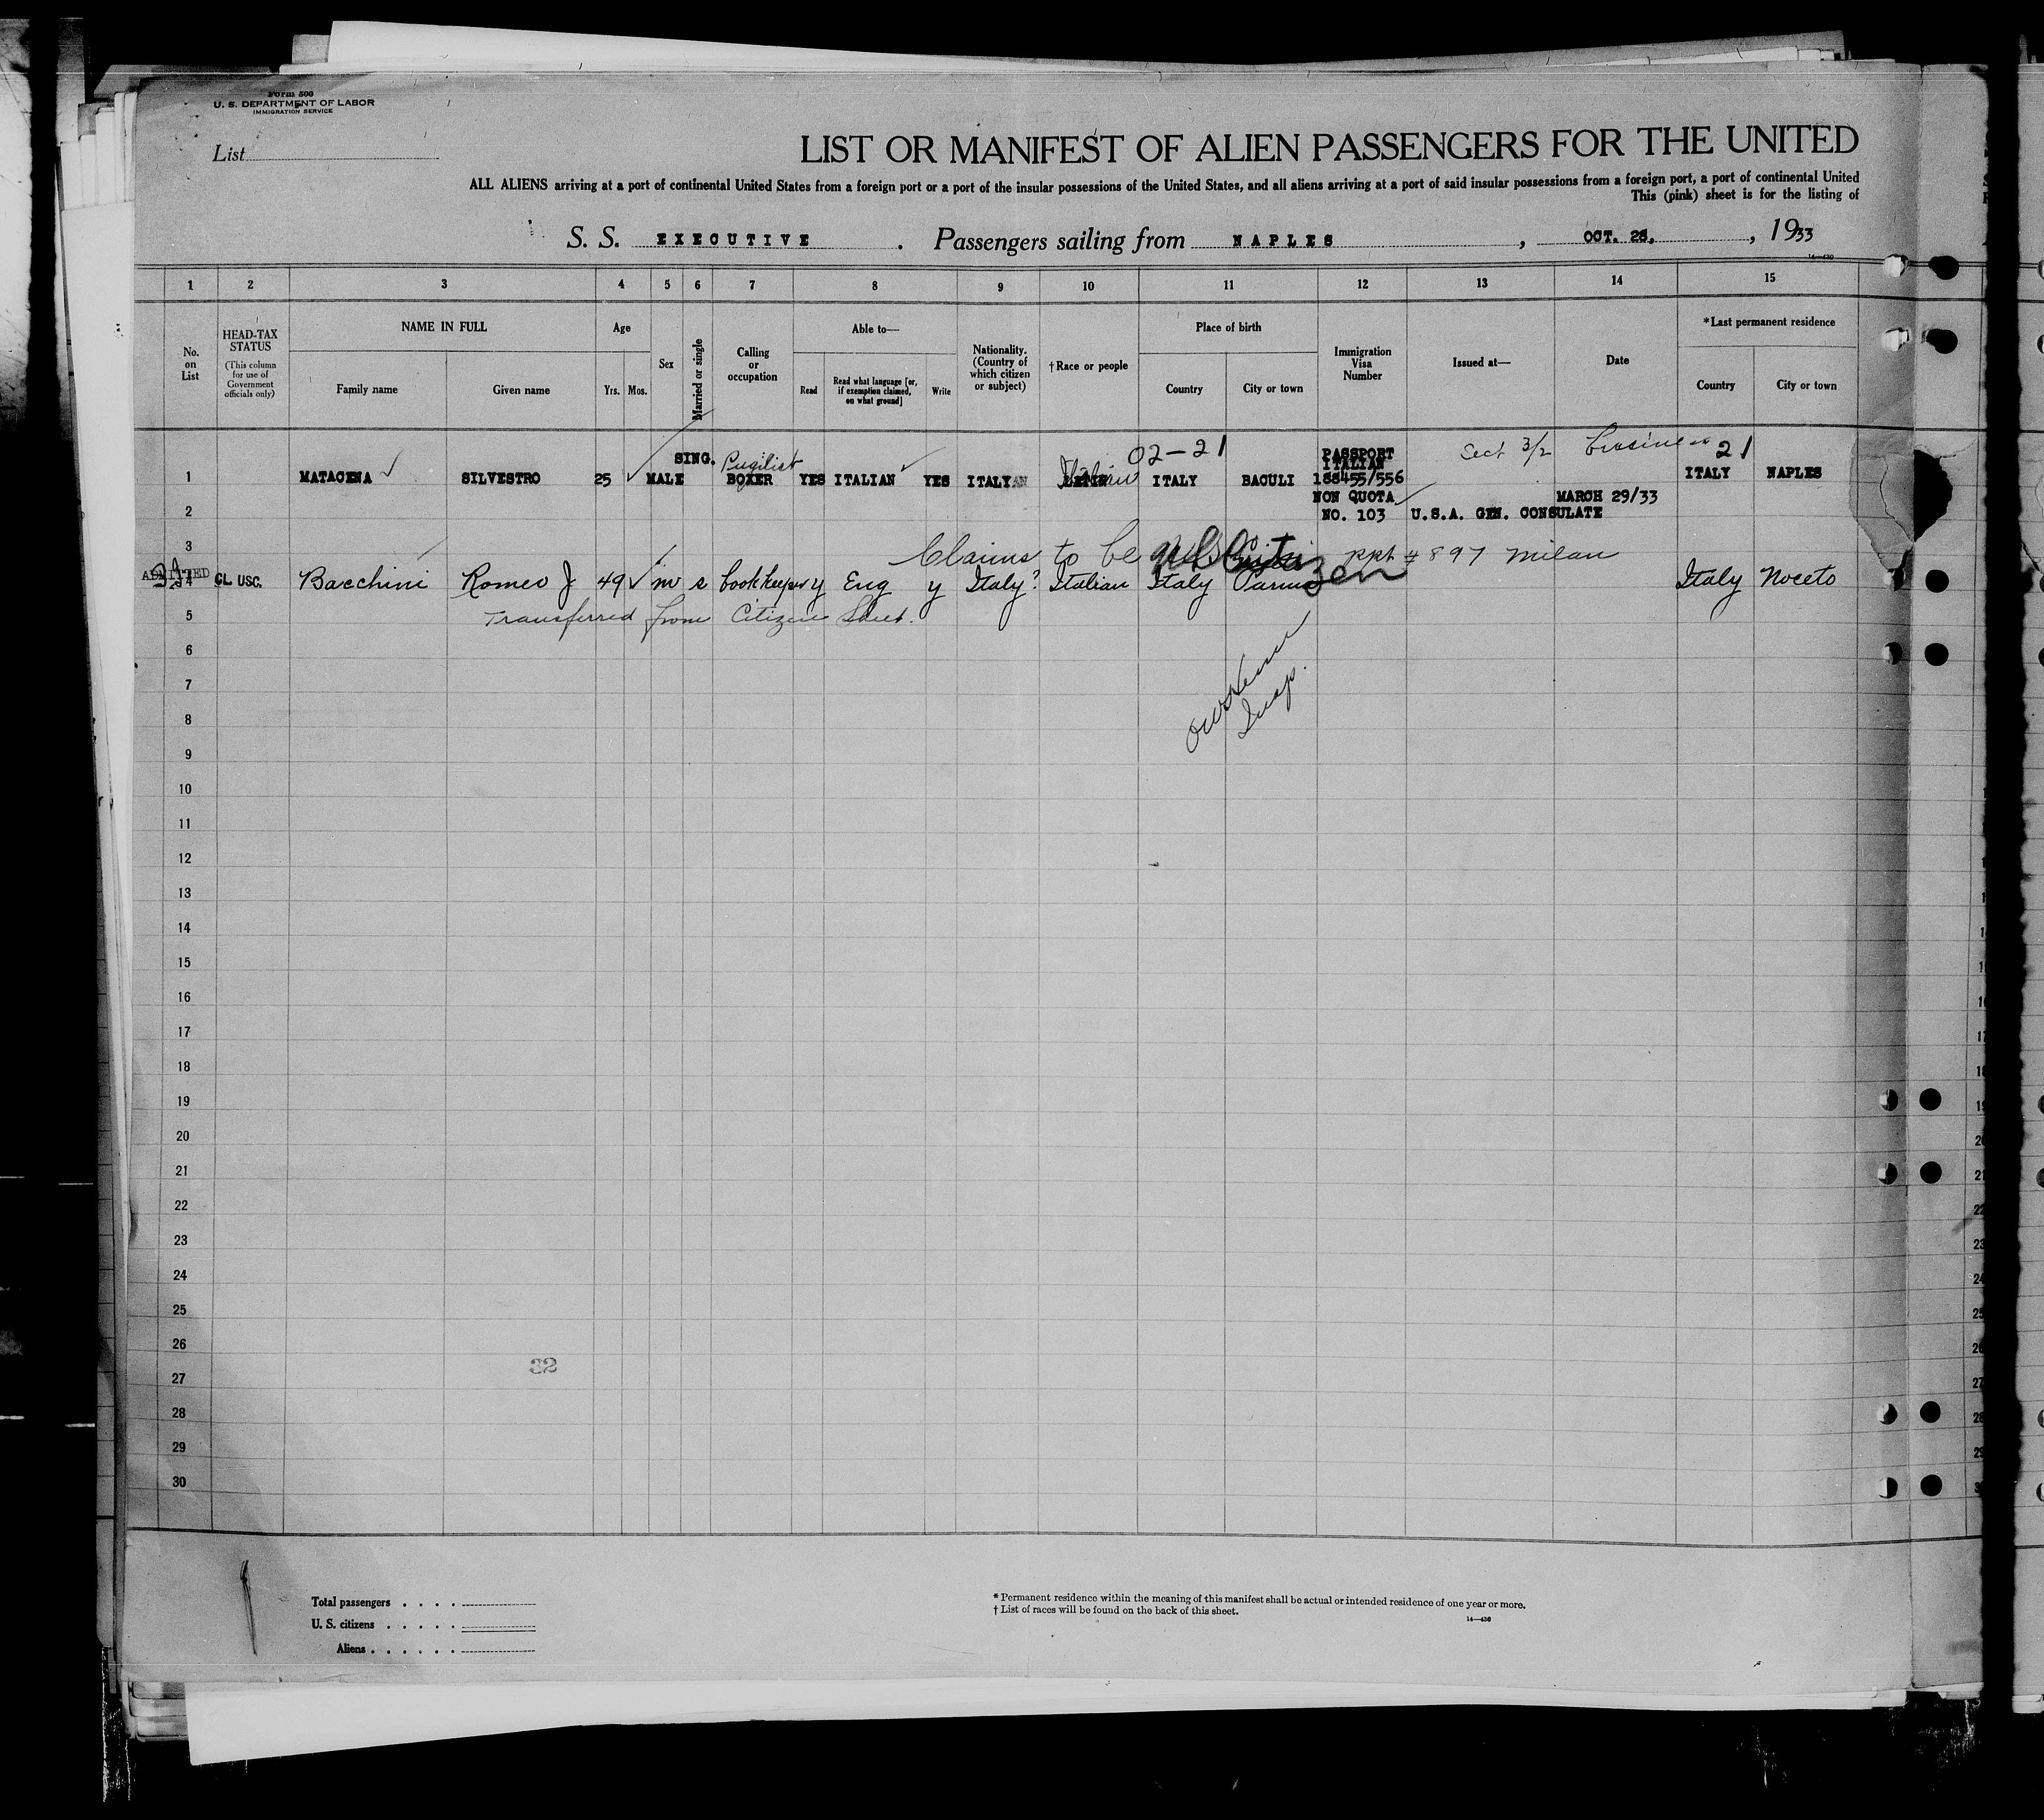 Form 500
U. S. DEPARTMENT OF LABOR
IMMIGRATION SERVICE
List
LIST OR MANIFEST OF ALIEN PASSENGERS FOR THE UNITED
ALL ALIENS arriving at a port of continental United States from a foreign port or a port of the insular possessions of the United States, and all aliens arriving at a port of said insular possessions from a foreign port, a port of continental United
This (pink) sheet is for the listing of
S. S. EXECUTIVE . Passengers sailing from NAPLES , OCT. 28, , 1933
14—430
1 2 3 4 5 6 7 8 9 10 11 12 13 14 15
No. on List
HEAD-TAX STATUS (This column for use of Government officials only)
NAME IN FULL
Family name Given name
Age
Yrs. Mos.
Sex
Married or single
Calling or occupation
Able to—
Read Read what language [or, if exemption claimed, on what ground] Write
Nationality. (Country of which citizen or subject)
†Race or people
Place of birth
Country City or town
Immigration Visa Number
Issued at—
Date
*Last permanent residence
Country City or town
02-21 PASSPORT Sect 3/2 Business 21
SING. Pugilist ITALIAN
1 MATACENA SILVESTRO 25 MALE BOXER YES ITALIAN YES ITALYAN Italian ITALY BACULI 188455/556 ITALY NAPLES
NON QUOTA MARCH 29/33
2 NO. 103 U.S.A. GEN. CONSULATE
3 Claims to be US Citizen ppt # 897 Milan
ADMITTED 4 CL. USC. Bacchini Romeo J 49 m s bookkeeper y Eng y Italy? Italian Italy Parma Italy Noceto
5 Transferred from Citizen Sheet.
6
Insp.
7
8
9
10
11
12
13
14
15
16
17
18
19
20
21
22
23
24
25
26
32
27
28
29
30
Total passengers . . . .
U. S. citizens . . . . .
Aliens . . . . . .
* Permanent residence within the meaning of this manifest shall be actual or intended residence of one year or more.
† List of races will be found on the back of this sheet.
14—430